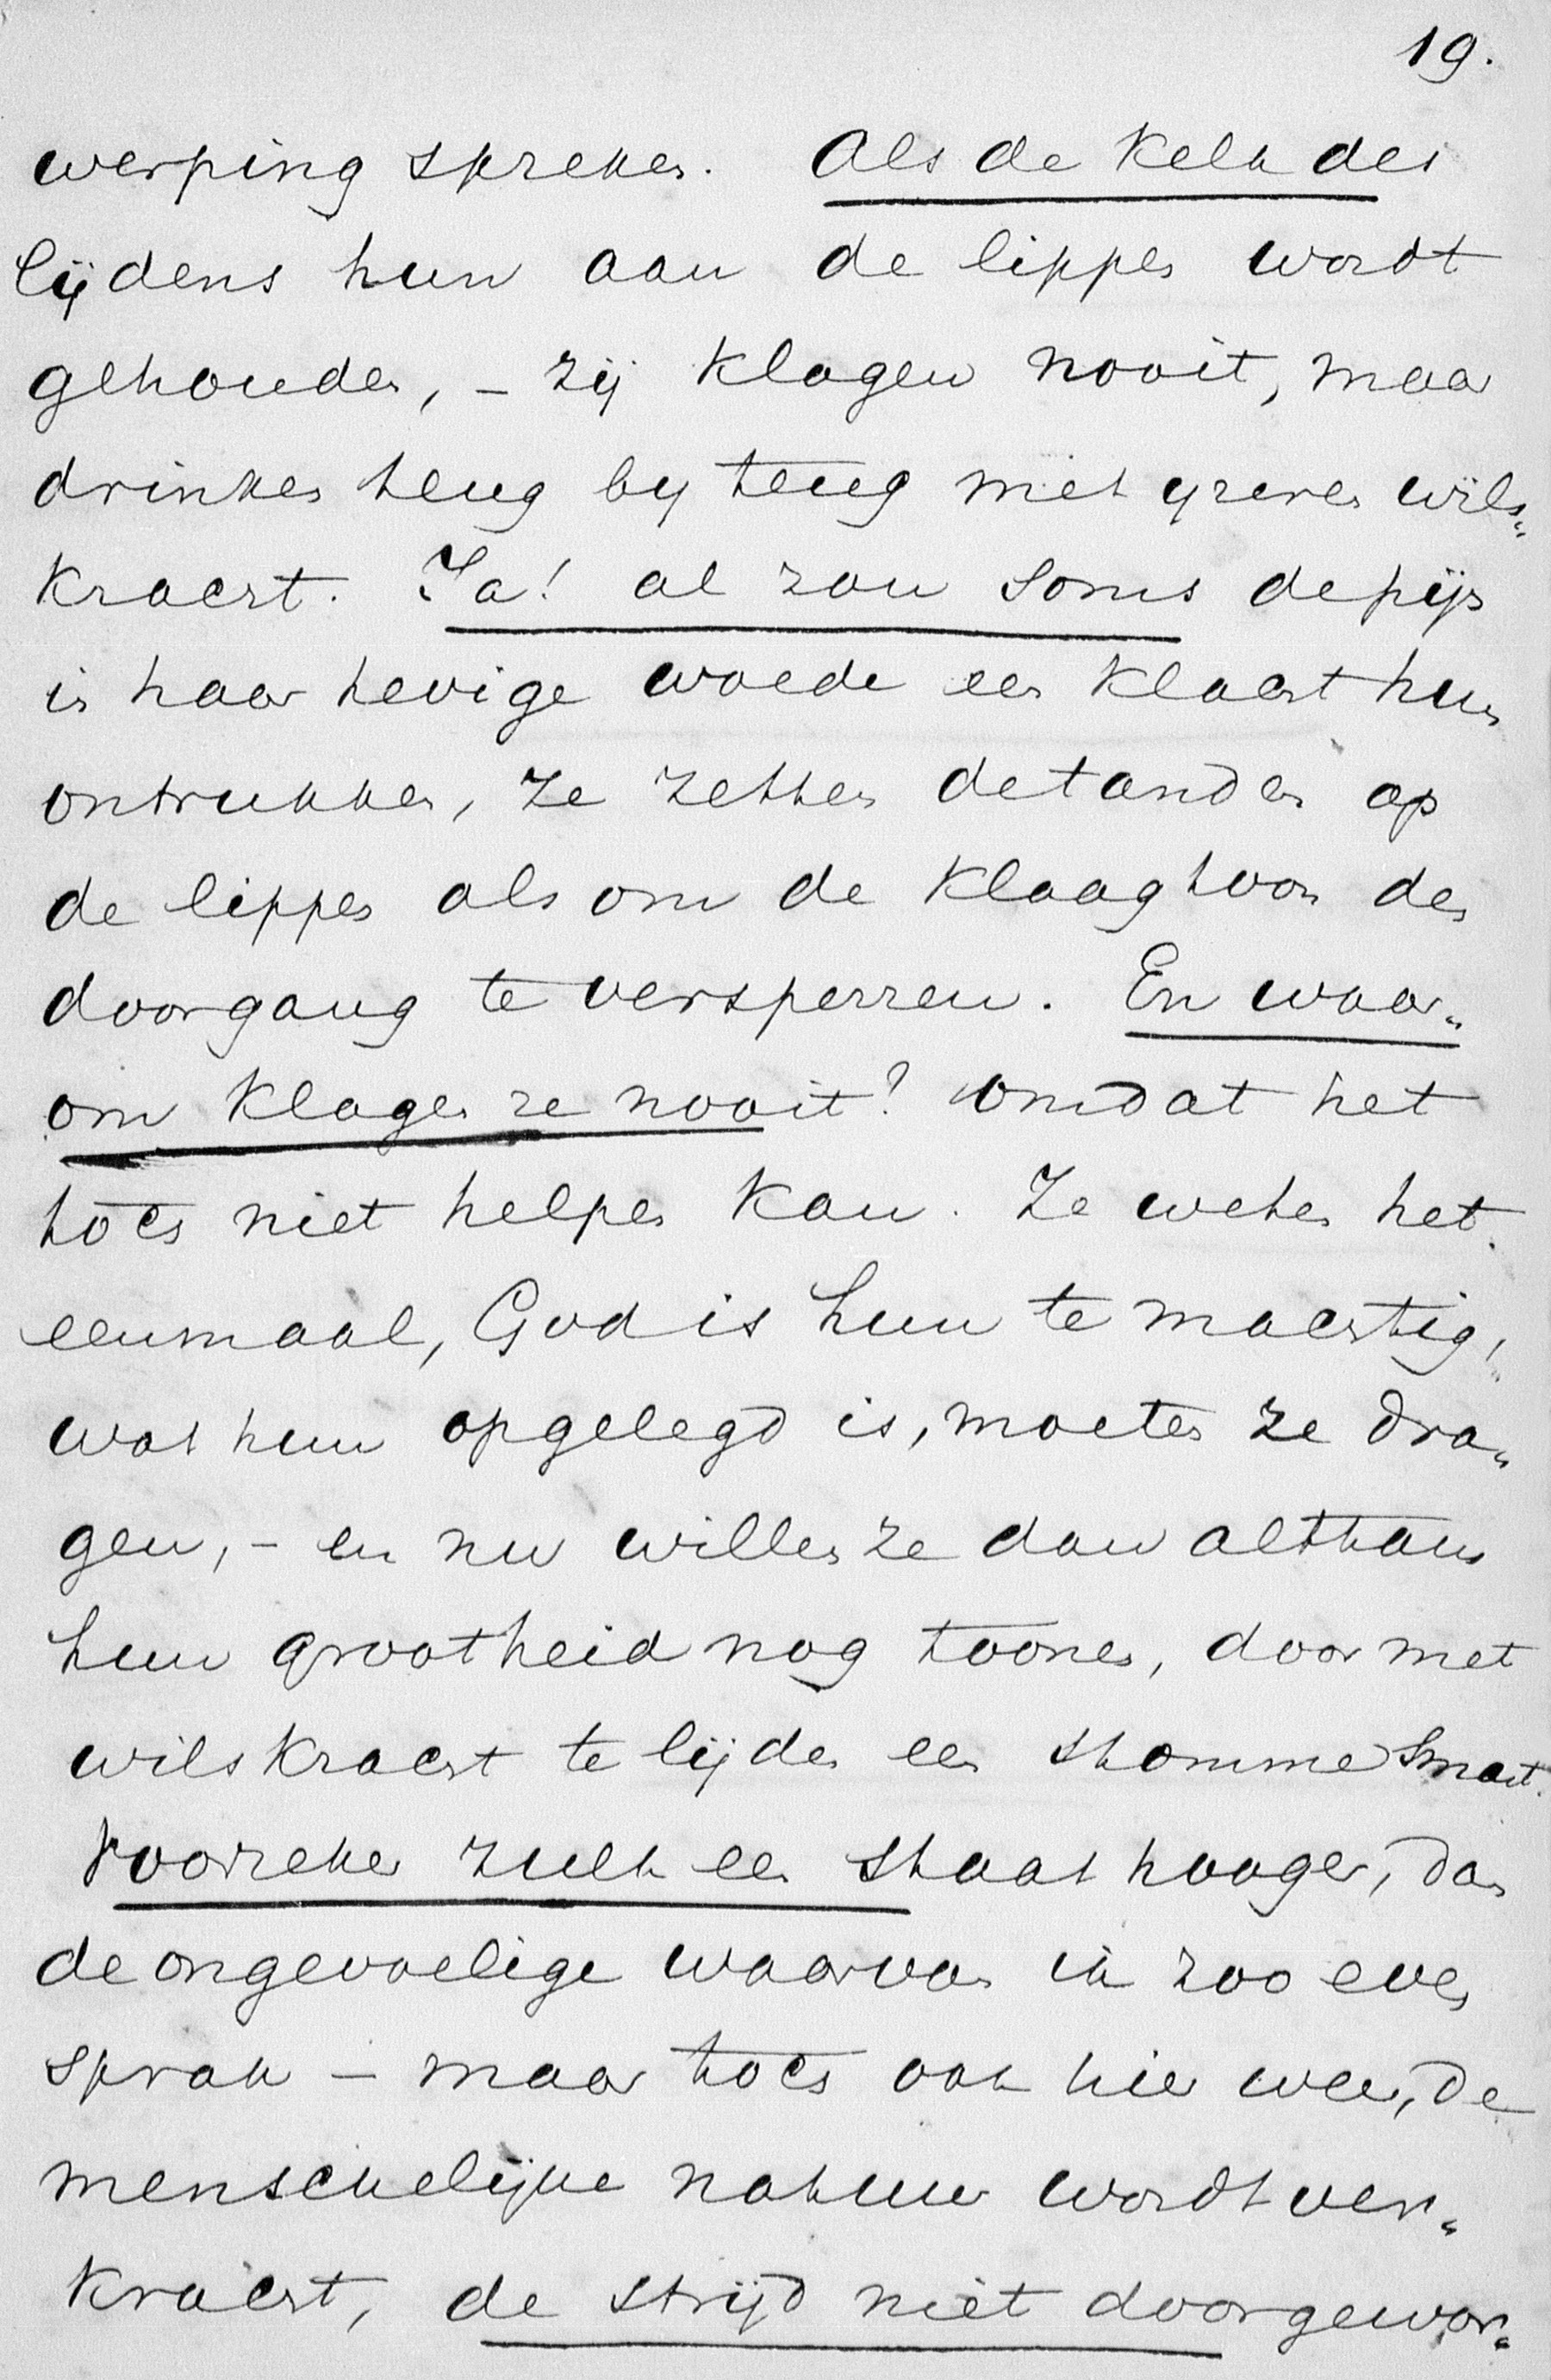 19.
werping spreken. Als de kelk des
lijdens hun aan de lippen wordt
gehouden, - zij klagen nooit, maar
drinken teug by teug met yzeren wils„
kracht. Ja! al zou soms de pijn
in haar hevige woede een klacht hun
ontrukken, ze zetten de tanden op
de lippen als om de klaagtoon den
doorgang te versperren. En waar„
om klagen ze nooit? omdat het
toch niet helpen kan. Ze weten het
eenmaal, God is hun te machtig,
wat hun opgelegd is, moeten ze dra„
gen, - en nu willen ze dan althans
hun grootheid nog toonen, door met
wilskracht te lijden een stomme smart.
Voorzeker zulk een staat hooger, dan
de ongevoelige waarvan ik zoo even
sprak - maar toch ook hier weer, de
menschelijke natuur wordt ver„
kracht, de strijd niet doorgewor„